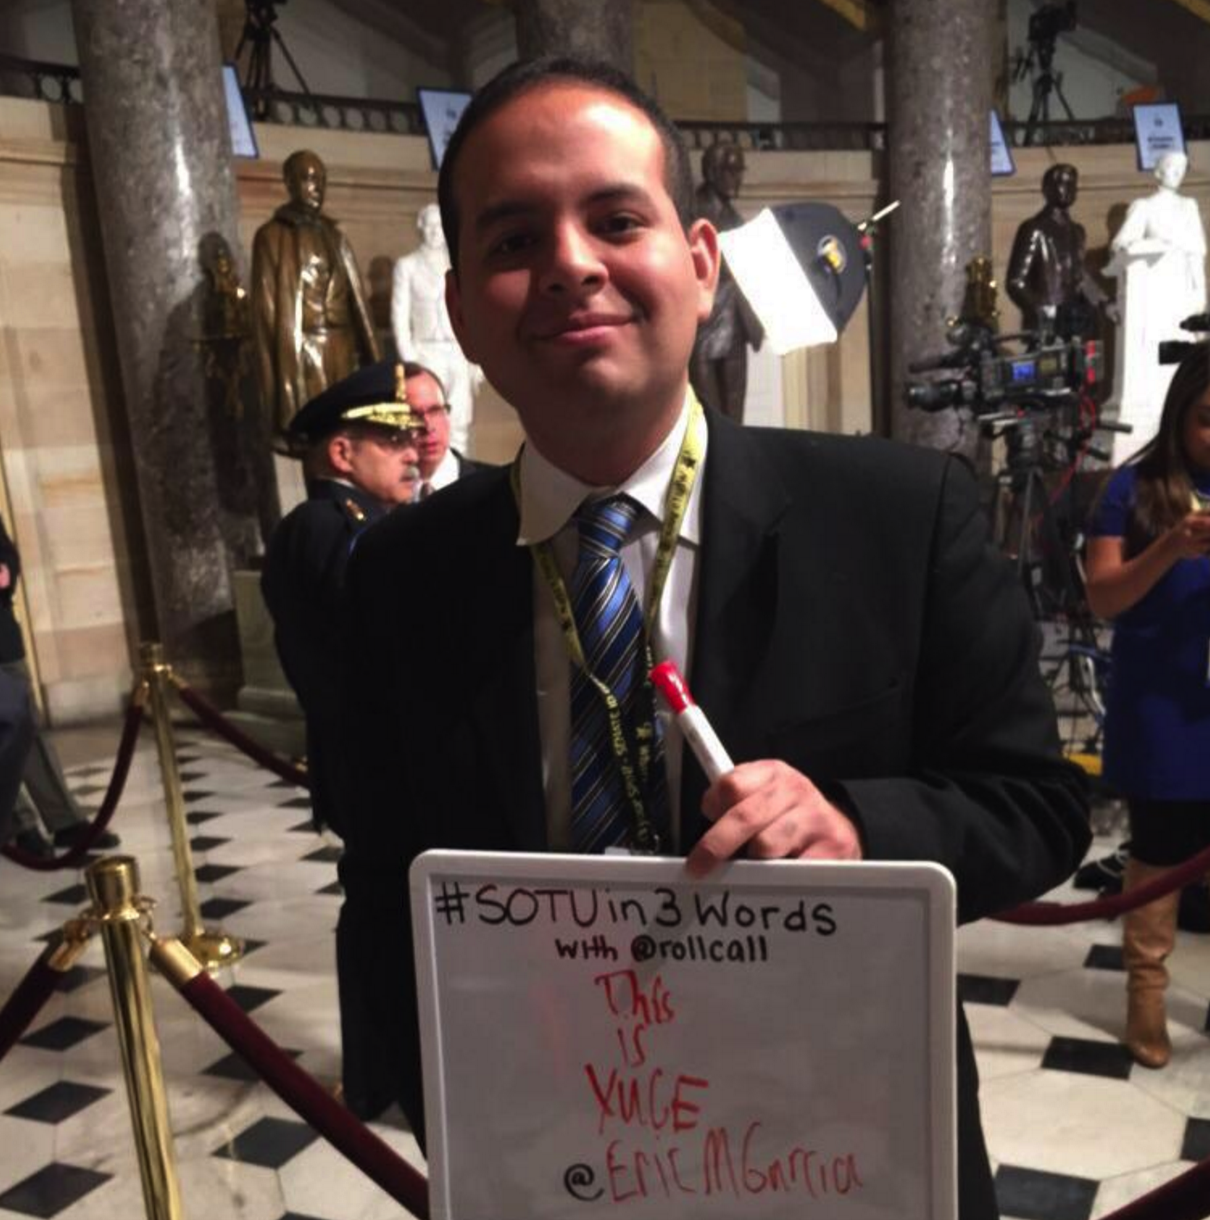 #SOTUin3Words
with @rollcall
This
is
YUGE
@EricMGarcia